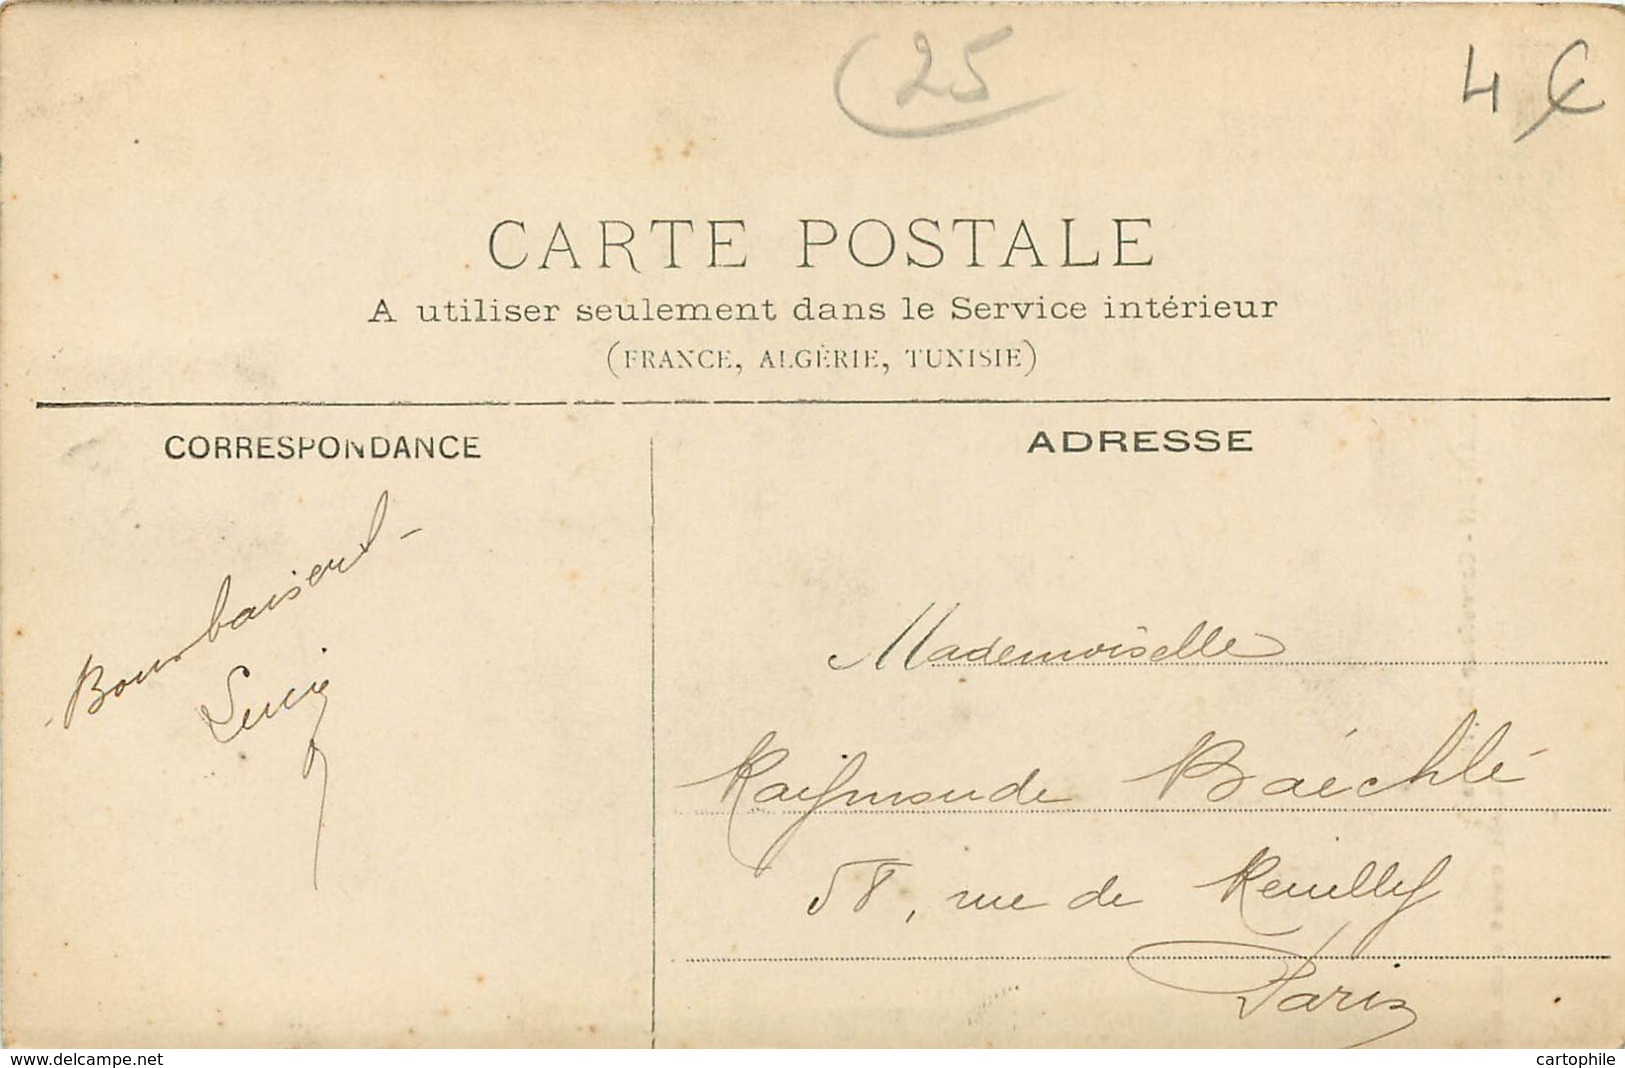 25
4 €
CARTE POSTALE
A utiliser seulement dans le Service intérieur
(FRANCE, ALGÉRIE, TUNISIE)
CORRESPONDANCE
Bons baisers
Lucie
ADRESSE
Mademoiselle
Raymonde Baéchlé
58, rue de Reuilly
Paris
www.delcampe.net
cartophile